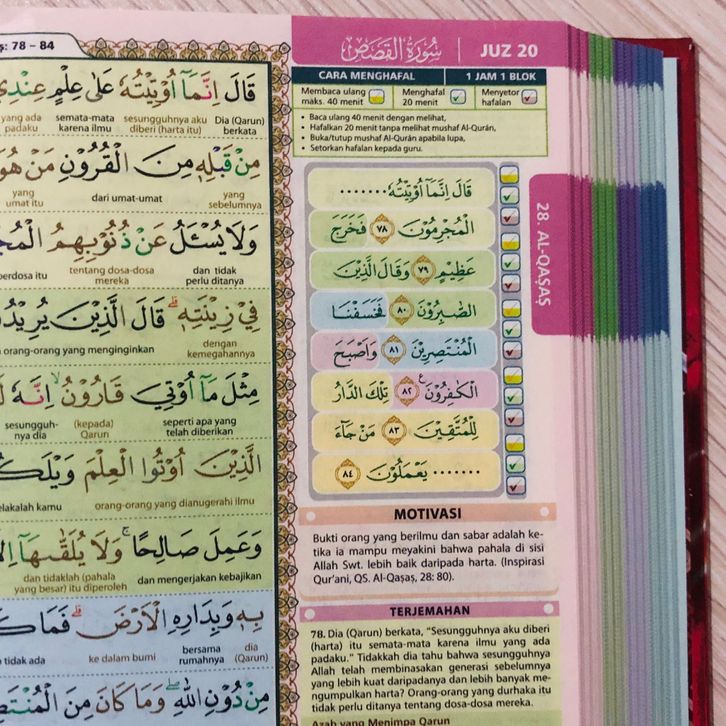 : 78 – 84
قَالَ اِنَّمَآ اُوْتِيْتُهٗ عَلٰى عِلْمٍ عِنْدِيْ
yang ada padaku
semata-mata karena ilmu
sesungguhnya aku diberi (harta itu)
Dia (Qarun) berkata
مِنْ قَبْلِهٖ مِنَ الْقُرُوْنِ مَنْ هُوَ
yang umat itu
dari umat-umat
yang sebelumnya
وَلَا يُسْـَٔلُ عَنْ ذُنُوْبِهِمُ
berdosa itu
tentang dosa-dosa mereka
dan tidak perlu ditanya
فِيْ زِيْنَتِهٖ ۗ قَالَ الَّذِيْنَ يُرِيْدُ
orang-orang yang menginginkan
dengan kemegahannya
مِثْلَ مَآ اُوْتِيَ قَارُوْنُ ۙ اِنَّهٗ
sesungguh-nya dia
(kepada) Qarun
seperti apa yang telah diberikan
الَّذِيْنَ اُوْتُوا الْعِلْمَ وَيْلَكُ
elakalah kamu
orang-orang yang dianugerahi ilmu
وَعَمِلَ صَالِحًا ۚ وَلَا يُلَقّٰىهَآ
dan tidaklah (pahala yang besar) itu diperoleh
dan mengerjakan kebajikan
بِهٖ وَبِدَارِهِ الْاَرْضَ ۗ فَمَا كَ
tidak ada
ke dalam bumi
bersama rumahnya
dia (Qarun)
مِنْ دُوْنِ اللّٰهِ ۖ وَمَا كَانَ مِنَ الْمُنْتَصِ
سُوْرَةُ الْقَصَصِ
JUZ 20
CARA MENGHAFAL
1 JAM 1 BLOK
Membaca ulang maks. 40 menit
Menghafal 20 menit
Menyetor hafalan
• Baca ulang 40 menit dengan melihat,
• Hafalkan 20 menit tanpa melihat mushaf Al-Qurán,
• Buka/tutup mushaf Al-Qurán apabila lupa,
• Setorkan hafalan kepada guru.
قَالَ اِنَّمَآ اُوْتِيْتُهٗ.......
الْمُجْرِمُوْنَ ٧٨ فَخَرَجَ
عَظِيْمٍ ٧٩ وَقَالَ الَّذِيْنَ
الصّٰبِرُوْنَ ٨٠ فَخَسَفْنَا
الْمُنْتَصِرِيْنَ ٨١ وَاَصْبَحَ
الْكٰفِرُوْنَ ࣖ ٨٢ تِلْكَ الدَّارُ
لِلْمُتَّقِيْنَ ٨٣ مَنْ جَآءَ
....... يَعْمَلُوْنَ ٨٤
28. AL-QAṢAṢ
MOTIVASI
Bukti orang yang berilmu dan sabar adalah ke-
tika ia mampu meyakini bahwa pahala di sisi
Allah Swt. lebih baik daripada harta. (Inspirasi
Qur'ani, QS. Al-Qaṣaṣ, 28: 80).
TERJEMAHAN
78. Dia (Qarun) berkata, "Sesungguhnya aku diberi
(harta) itu semata-mata karena ilmu yang ada
padaku." Tidakkah dia tahu bahwa sesungguhnya
Allah telah membinasakan generasi sebelumnya
yang lebih kuat daripadanya dan lebih banyak me-
ngumpulkan harta? Orang-orang yang durhaka itu
tidak perlu ditanya tentang dosa-dosa mereka.
Azab yang Menimpa Qarun